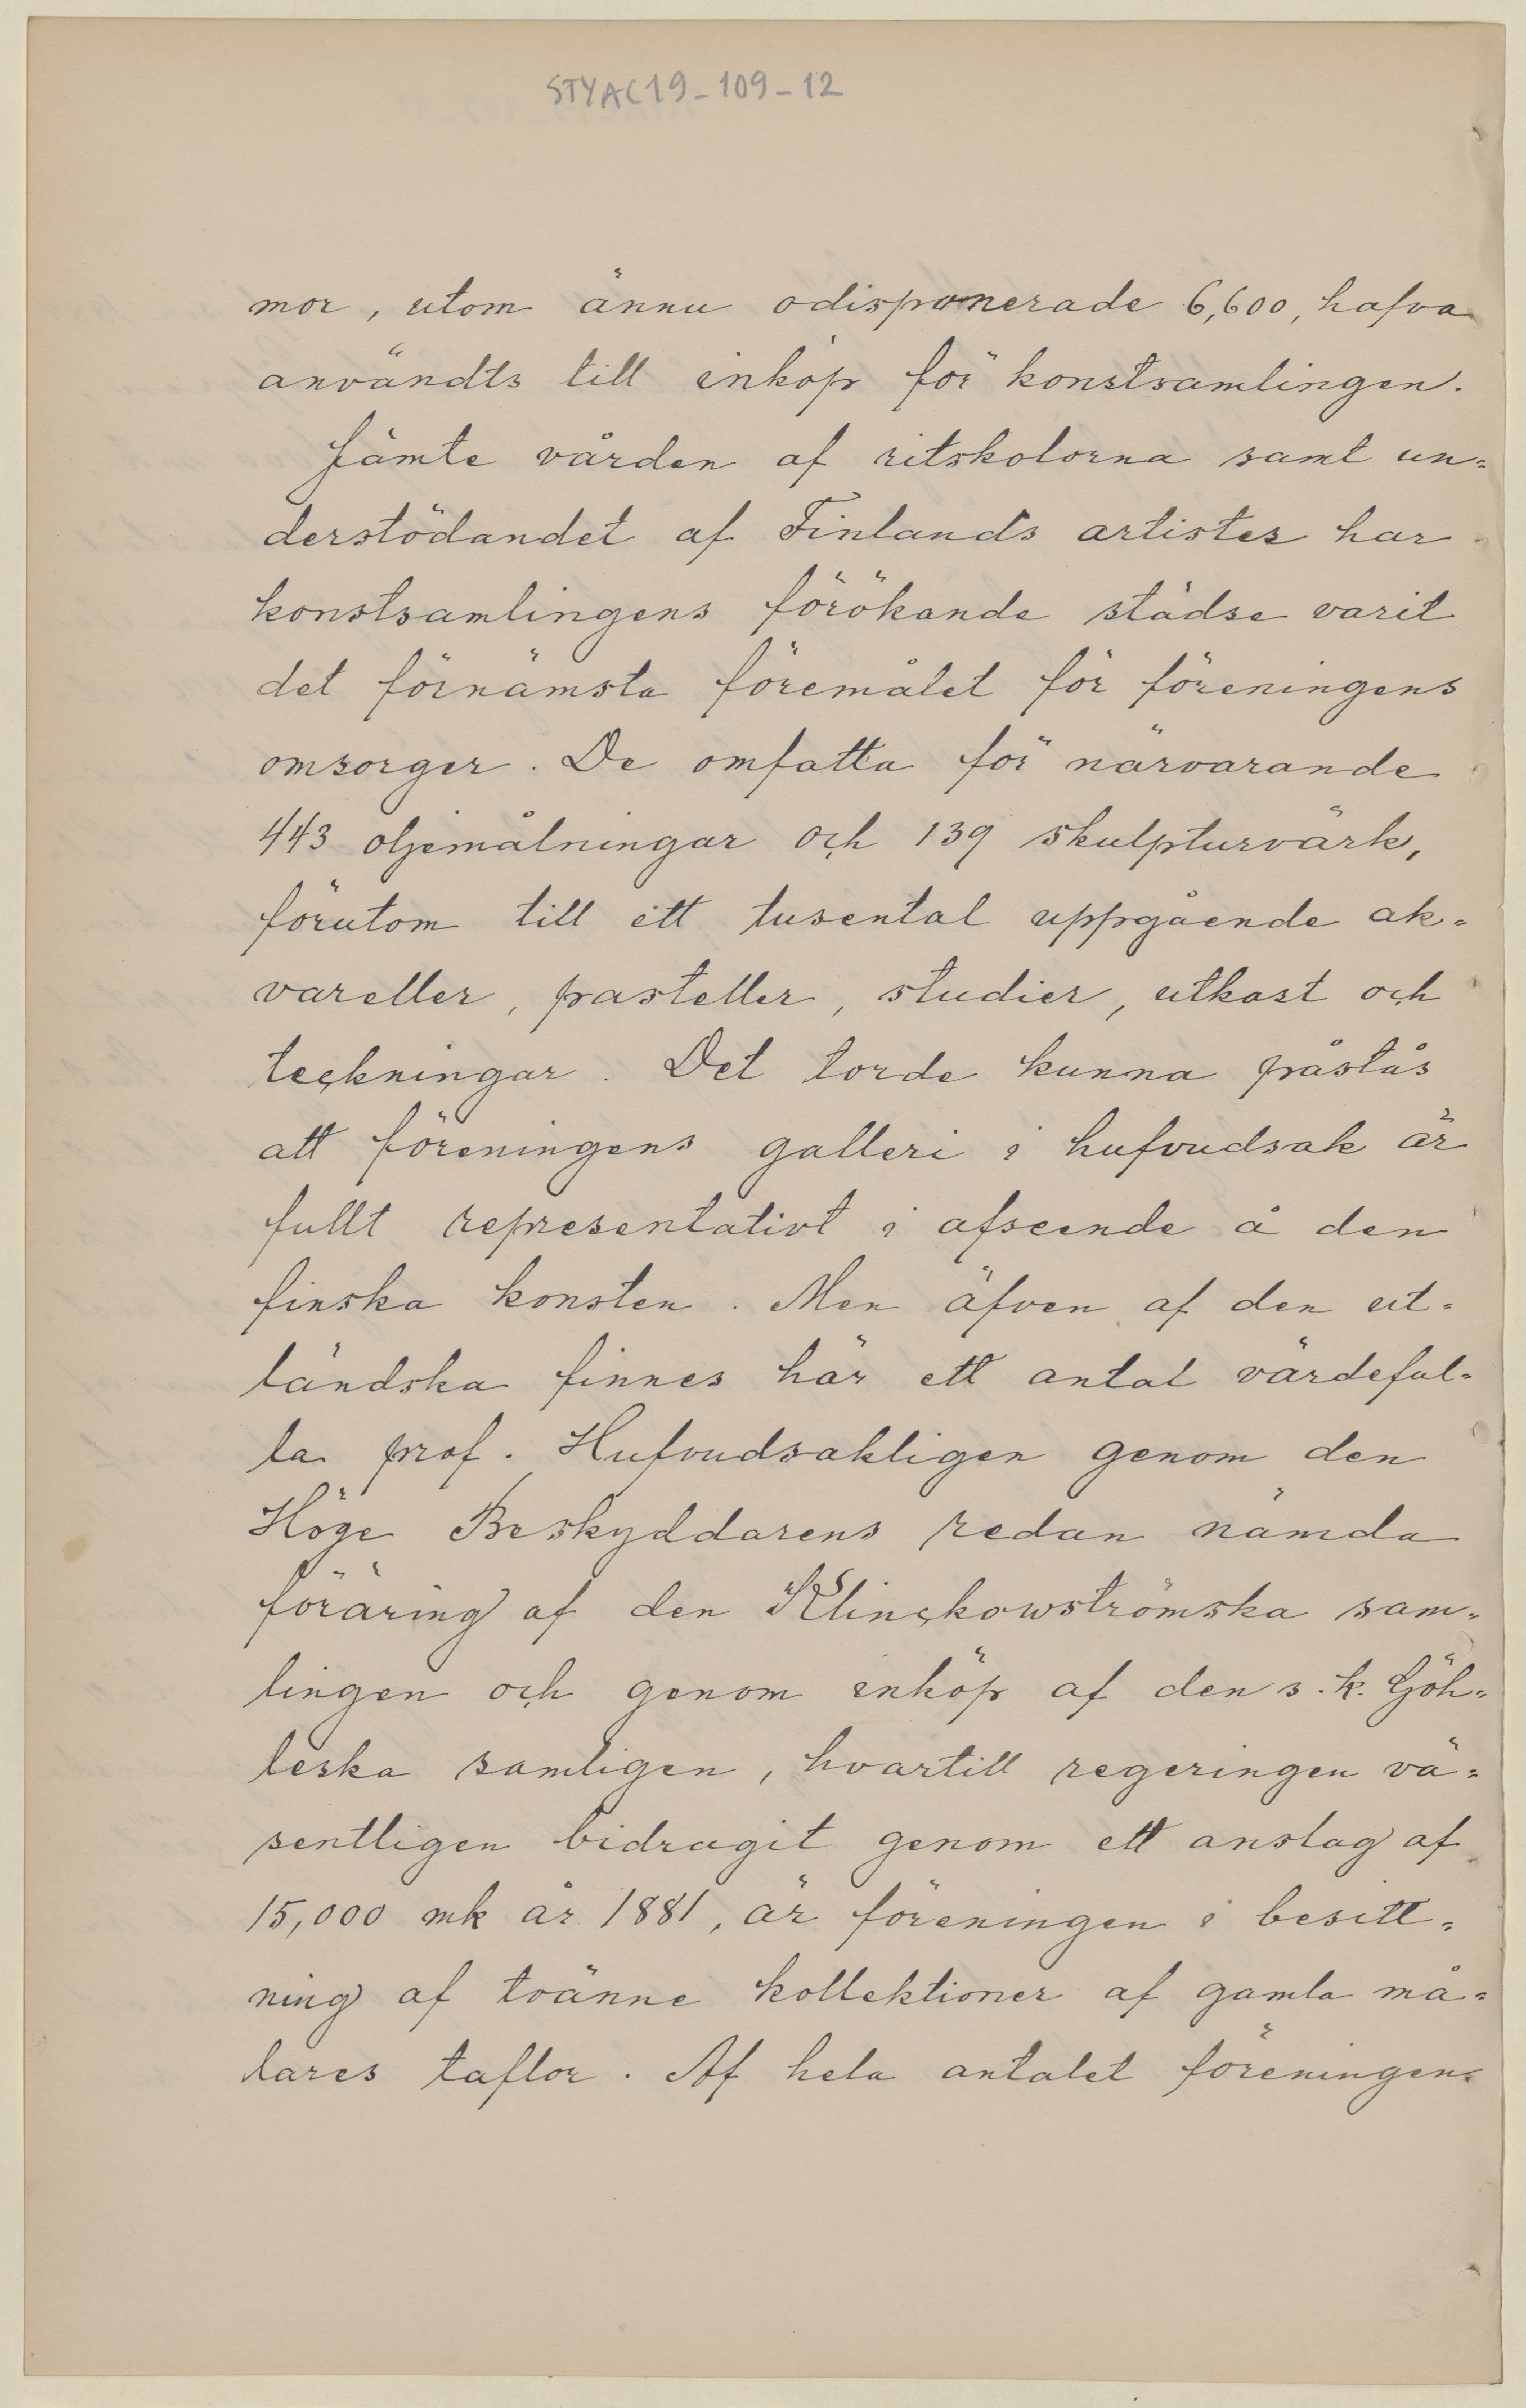 STYAC19-109-12
mor, utom ännu odisponerade 6,600, hafva
användts till inköp för konstsamlingen.
Jämte vården af ritskolorna samt un=
derstödandet af Finlands artister har
konstsamlingens förökande städse varit
det förnämsta föremålet för föreningens
omsorger. De omfatta för närvarande
443 oljemålningar och 139 skulpturvärk,
förutom till ett tusental uppgående ak=
vareller, pasteller, studier, utkast och
teckningar. Det torde kunna påstås
att föreningens galleri i hufvudsak är
fullt representativt i afseende å den
finska konsten. Men äfven af den ut=
ländska finnes här ett antal värdeful=
la prof. Hufvudsakligen genom den
Höge Beskyddarens redan nämda
föräring af den Klinckowströmska sam=
lingen och genom inköp af den s.k. Göh=
leska samligen, hvartill regeringen vä=
sentligen bidragit genom ett anslag af
15,000 mk år 1881, är föreningen i besitt=
ning af tvänne kollektioner af gamla må=
lares taflor. Af hela antalet föreningen